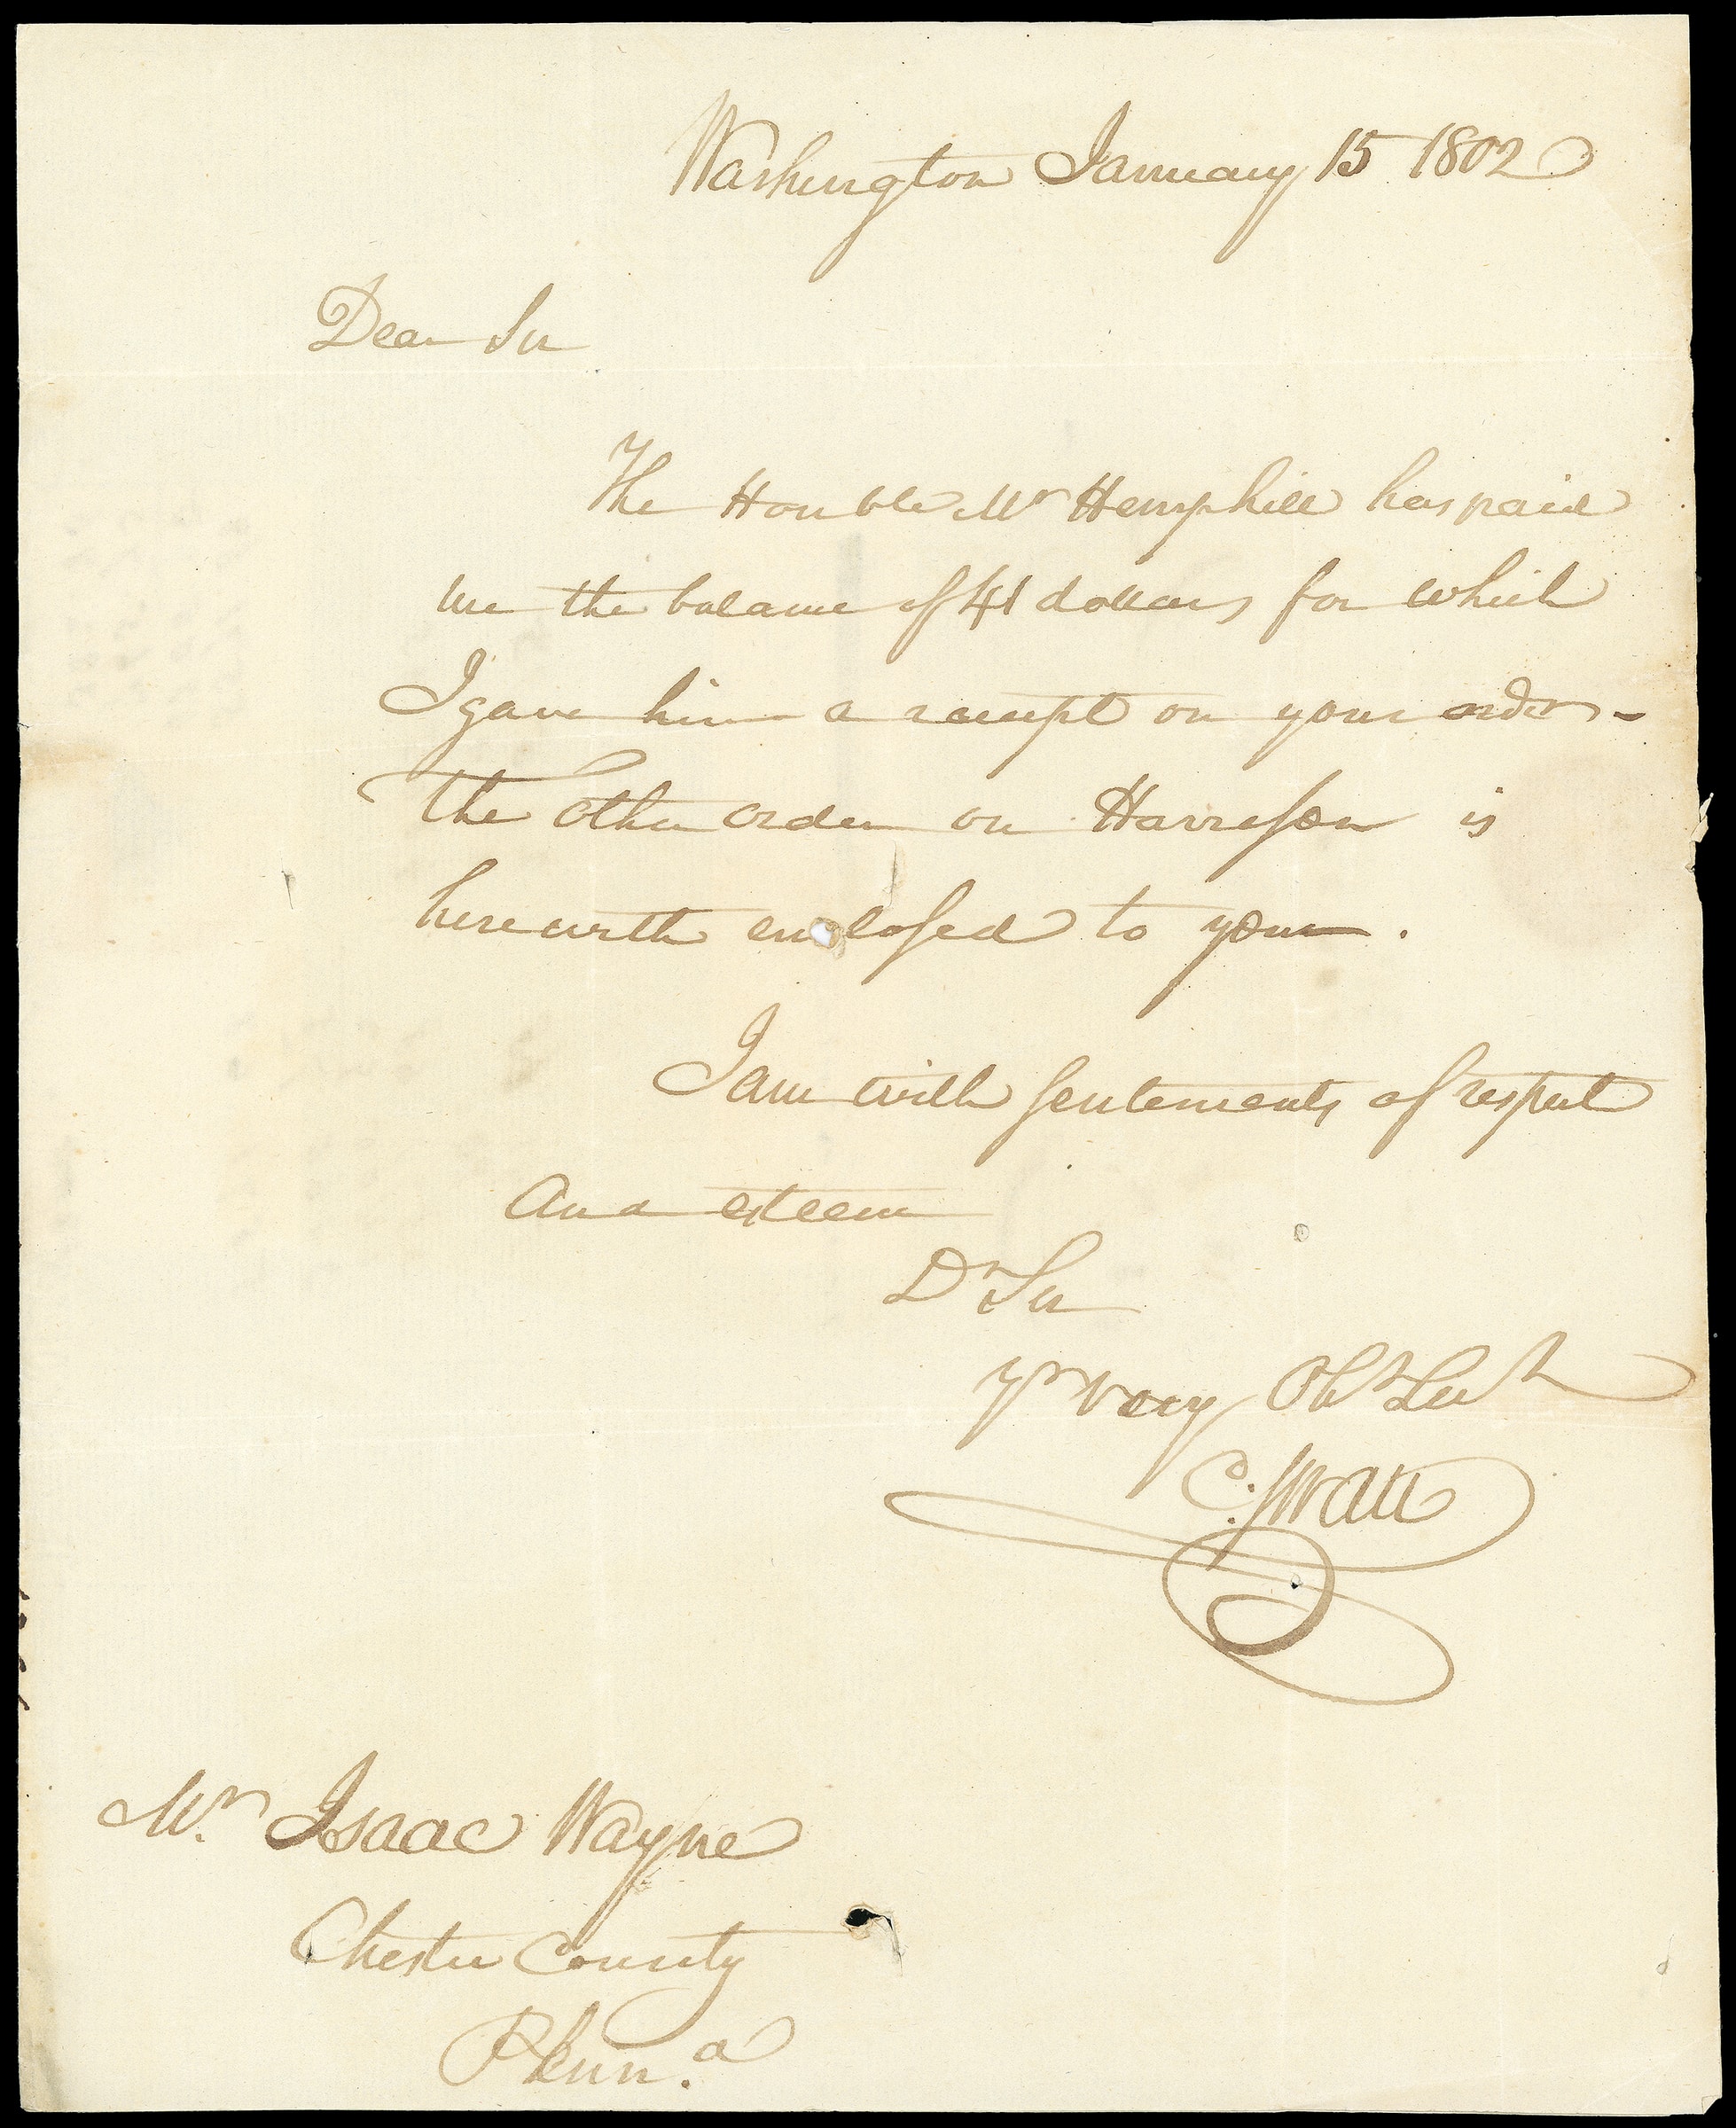 Washington January 15 1802
Dear Sir
The Honble Mr Hemphill has paid
me the balance of 41 dollars for which
I gave him a receipt on your order -
The other order on Harrison is
herewith enclosed to you .
I am with sentements of respect
And esteem
Dr Sir
Yr very Obt Sert
C. Swan
Mr. Isaac Wayne
Chester County
Penn.a